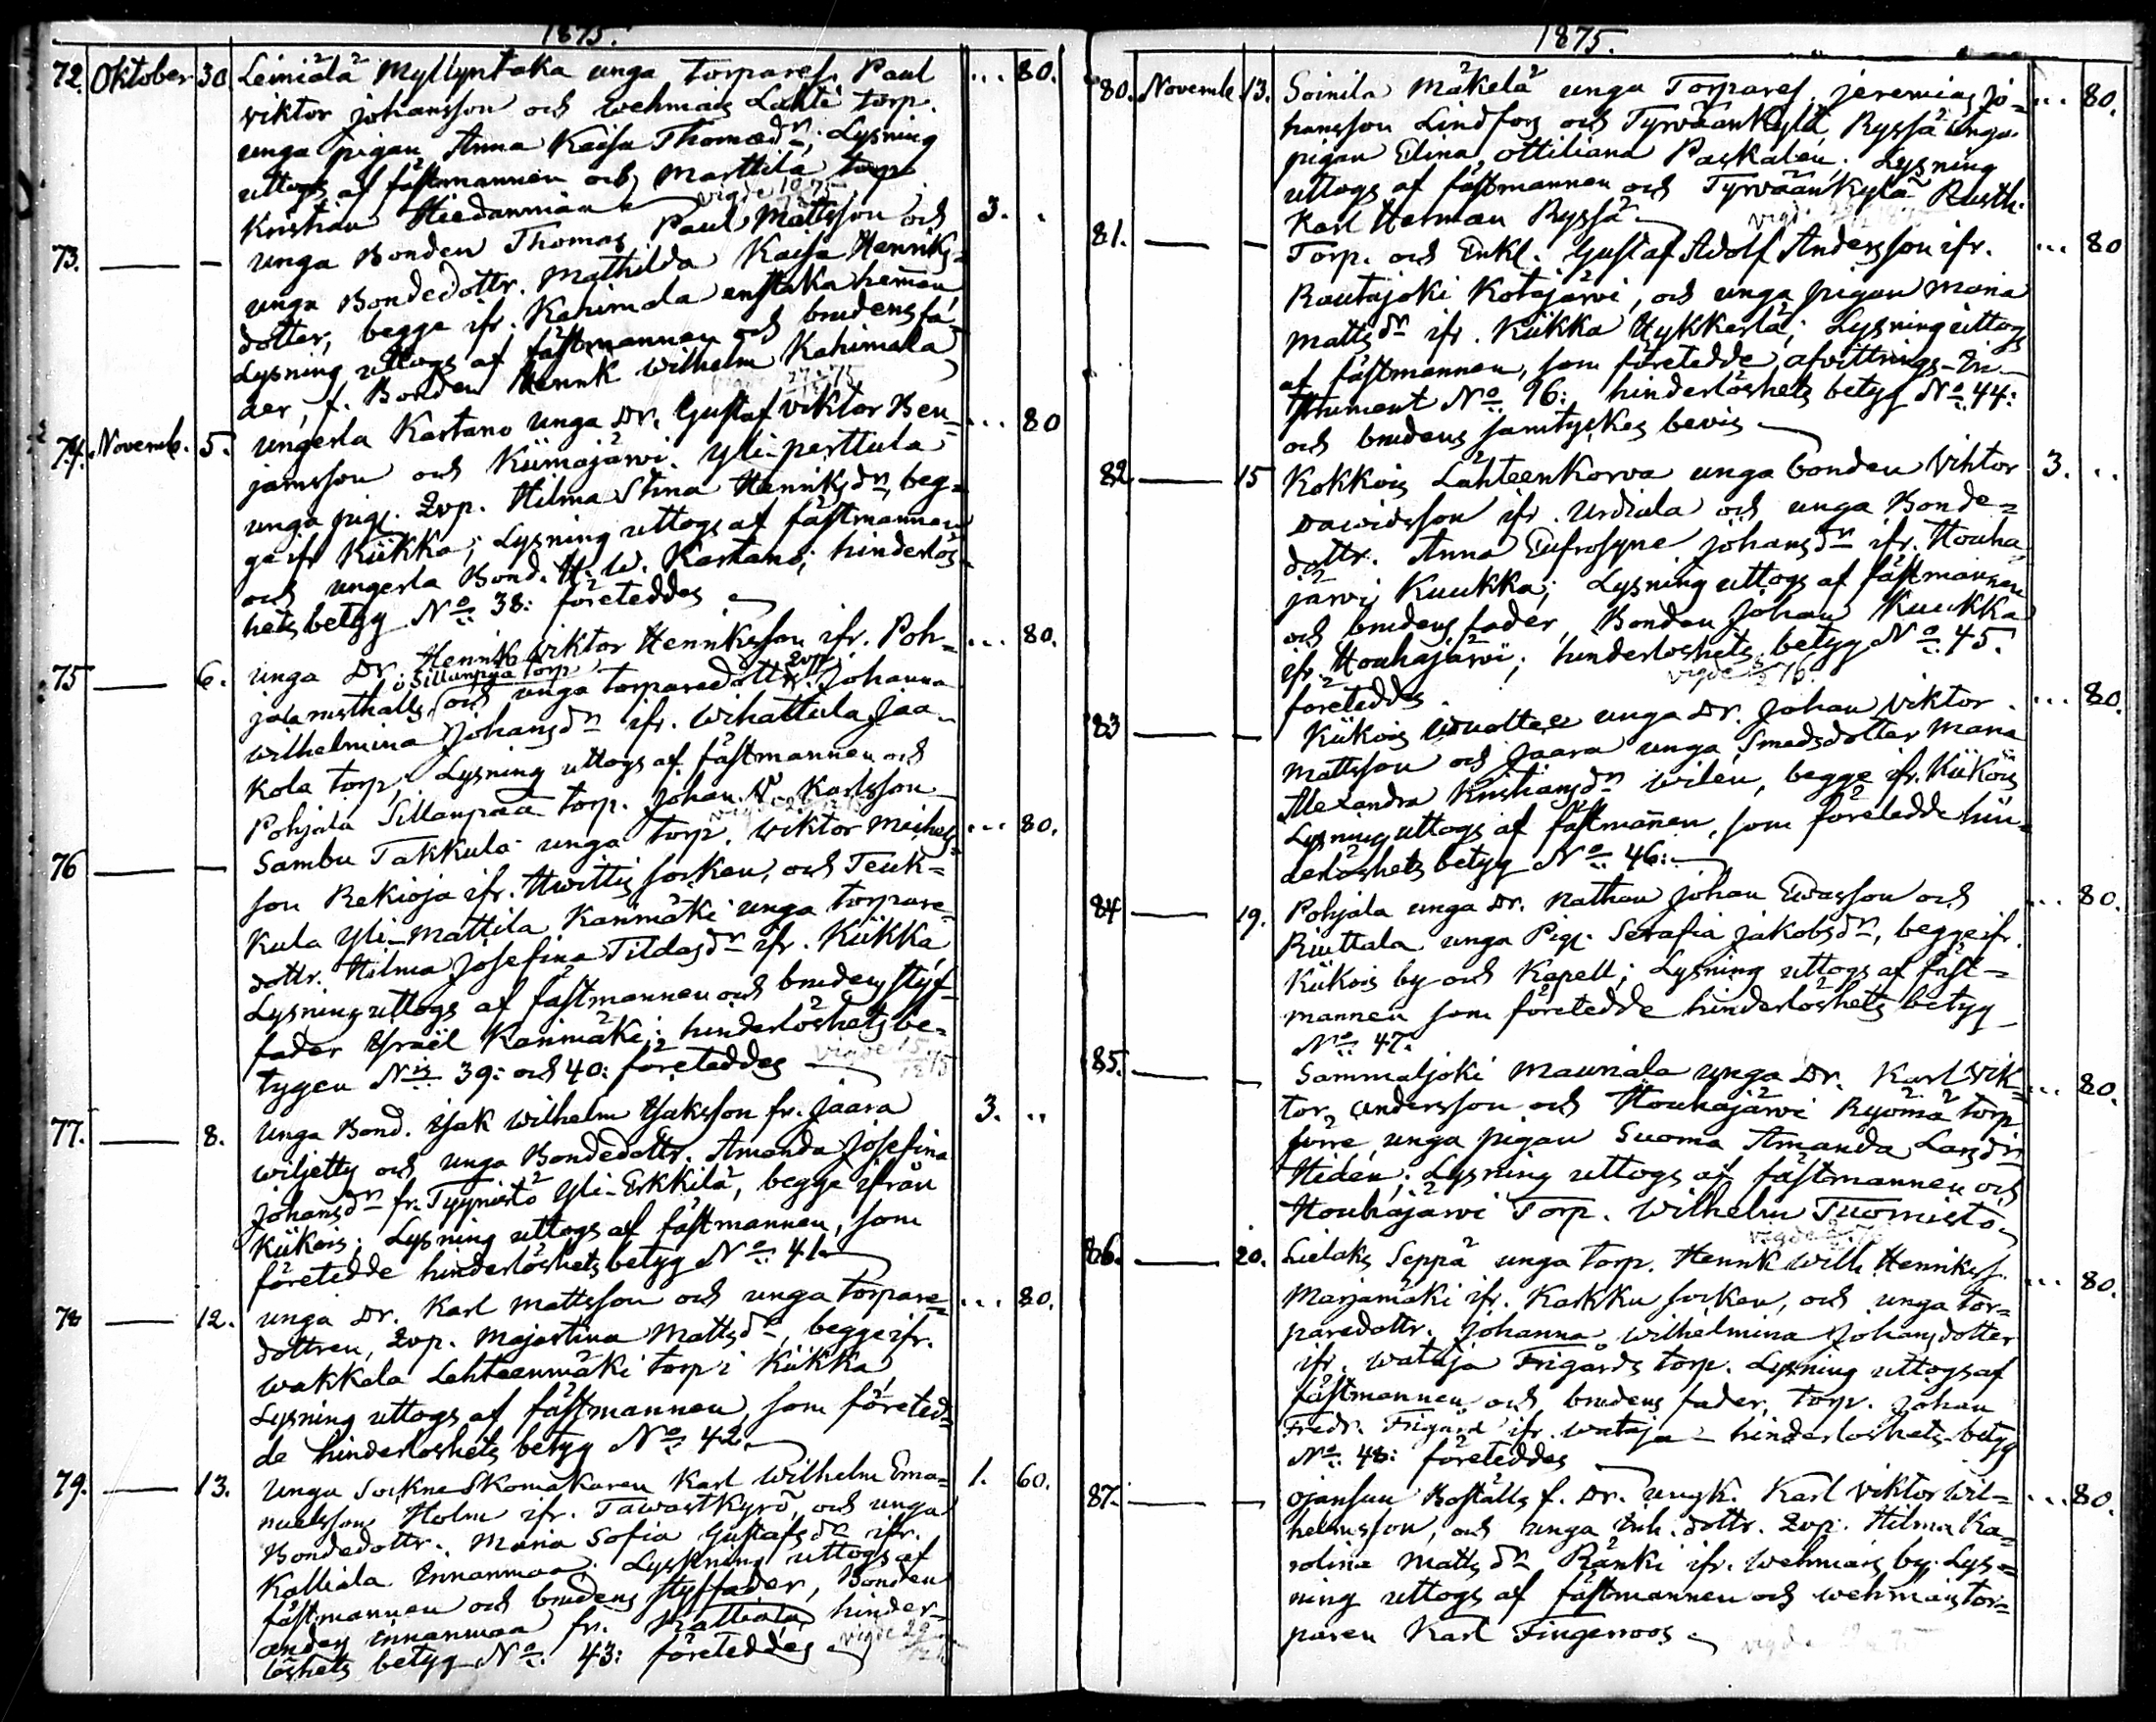 1875.
72. Oktober 30 Leiniälä Myllyntaka unga torpares. Paul ... 80.
viktor johansson och wehmais Lahti torp.
unga pigan Anna Kaisa Thomædr; Lysning
uttogs af fästmannen och Marttila torp
Kristian Hiedanmään
vigde
73. — — unga Bonden Thomas Paul Mattsson och 3. .
unga Bondedottr. Mathilda Kaisa Henriks=
dotter, begge ifr. Kahimala enstaka hemman
Lysning uttogs af fästmannen och brudens fa-
der, f. Bonden Henrik Wilhelm Kahimala
vigde
74. Novemb. 5. ungerla Kartano unga Dr. Gustaf viktor Ben= ... 80
jamsson och Kiimajärwi Yli-perttula
unga pig. Zvp. Hilma Stina Henriksdr, beg=
ge ifr Kiikka; Lysning uttogs af fästmannen
och ungerla Bond. H. W. Kartano; hinderlös=
hets betyg No 38: företeddes
75 — 6. unga Dr. Henrik Viktor Henriksson ifr. Poh= ... 80.
i Sillanpää torp zvp.
jala rusthålls och unga torparedottr. Johanna
wilhelmina Johansdr ifr. Wihattula Jaa-
kola torp; Lysning uttogs af fästmannen och
Pohjala Sillanpää torp. Johan Karlsson
vigde
76 — — Sambu Takkula unga torp. Viktor Michels= ... 80.
son Rekioja ifr. Hwittis socken, och Teuk=
kula Yli-Mattila Kanimäki unga torpare=
dottr. Hilma Josefina Tildasdr ifr. Kiikka
Lysning uttogs af fästmannen och brudens styf=
fader Israël Kanimäki; hinderlöshets be=
tygen Nris 39: och 40: företeddes
vigde 15/12 75
77. — 8. unga Bond. Isak Wilhelm Isaksson fr. Jaara 3. ..
wiljetty och unga Bondedottr. Amanda Josefina
Johansdr fr. Tyynistö Yli-Erkkilä, begge ifrån
Kiikois; Lysning uttogs af fästmannen, som
företedde hinderlöshets betyg No 41.
78 — 12. unga Dr. Karl Mattsson och unga torpare= ... 80.
dottren, Zvp. Majastina Mattsdr, begge ifr.
wakkala Lehteenmäki torp i Kiikka
Lysning uttogs af fästmannen, som företed=
de hinderlöshets betyg No 42.
79. — 13. Unga Sockne Skomakaren Karl Wilhelm Ema= 1. 60.
nuelsson Holm ifr. Tawastkyrö, och unga
Bondedottr. Maria Sofia Gustafsdr ifr.
Kalliala Innanmaa; Lysning uttogs af
fästmannen och brudens styffader, Bonden
Anders Innanmaa fr. Kalliala hinder=
löshets betyg No 43: företeddes
vigde 29/12
1875.
80. Novemb. 13. Soinila Mäkelä unga Torpares. jeremias jo= ... 80.
hansson Lindfors och Tyrväänkylä Ryssä unga
pigan Elina Ottiliana Paskalén; Lysning
uttogs af fästmannen och Tyrväänkylä Rusth.
Karl Herman Ryssä
vigde
81. — — Torp. och Enkl. Gustaf Adolf Andersson ifr. ... 80
Rautajoki Kotajärwi, och unga pigan Maria
Mattsdr ifr. Kiikka Hykkerlä; Lysning uttogs
af fästmannen, som företedde afvittrings-In-
strument No 96: hinderlöshets betyg No 44:
och brudens samtyckes bevis
82. — 15 Kokkois Lähteenkorva unga bonden Viktor 3. ..
Dawidsson ifr. Urdiala och unga Bonde=
dottr. Anna Eufrosyne Johansdr ifr. Houha
järwi Kuukka; Lysning uttogs af fästmannen
och brudens fader, Bonden Johan Kuukka
ifr. Houhajärwi; hinderlöshets betyg No 45.
företeddes.
vigde 76.
83 — — Kiikois unga Dr. Johan Viktor ... 80.
Mattsson och Jaara unga Smedsdotter Maria
Alexandra Kristiansdr wilén, begge ifr. Kiikois
Lysning uttogs af fästmannen, som företedde hin=
derlöshets betyg No 46:
84 — 19. Pohjala unga Dr. Nathan Johan Ewasson och ... 80.
Ruuttala unga Pig. Serafia Jakobsdr, begge ifr.
Kiikois by och Kapell; Lysning uttogs af fäst=
mannen som företedde hinderlöshets betyg
No 47.
85. — — Sammaljoki Mauriala unga Dr. Karl Vik= ... 80.
tor Andersson och Houhajärwi Ryömä torp
förre unga pigan Suoma Amanda Larsdr
Hidén; Lysning uttogs af fästmannen och
Houhajärwi Torp. Wilhelm Tuomisto
vigde
86. — 20. Lielaks Seppä unga torp. Henrik Wilh. Henrikss. ... 80.
Marjamäki ifr. Karkku socken, och unga tor=
paredottr. Johanna Wilhelmina Johansdotter
ifr. Wataja Frigårds torp. Lysning uttogs af
fästmannen och brudens fader, torp. Johan
Fredr. Frigård ifr. Wataja – hinderlöshets betyg
No 48: företeddes
87. — — Ojansuu Boställs f. Dr. ungk. Karl Viktor Wil= ... 80.
helmsson, och unga Inh. dottr. Zvp. Hilma Ka=
rolina Mattsdr Ränki ifr. Wehmais by. Lys=
ning uttogs af fästmannen och wehmais tor=
paren Karl Fingerroos
vigde